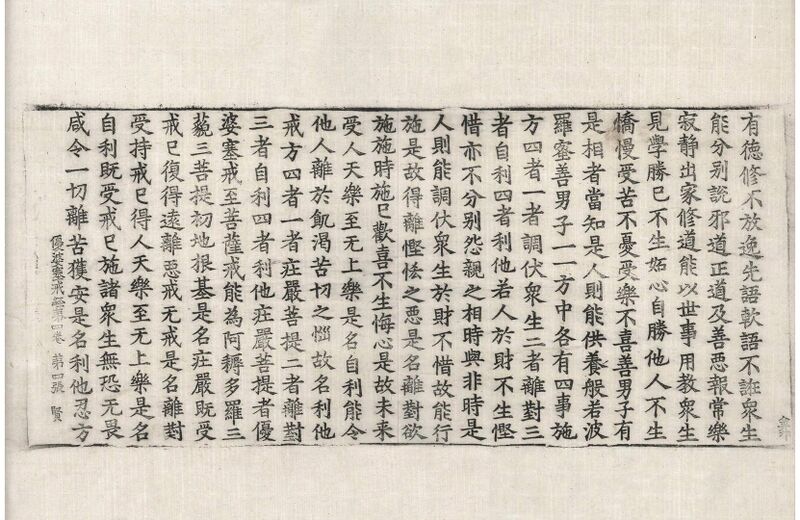 有德修不放逸先語軟語不誑衆生
能分別說邪道正道及善惡報常樂
寂静出家修道能以世事用教衆生
見學勝已不生妬心自勝他人不生
憍慢受苦不憂受樂不喜善男子有
是相者當知是人則能供養般若波
羅蜜善男子一一方中各有四事施
方四者一者調伏衆生二者離對三
者自利四者利他若人於財不生慳
惜亦不分別怨親之相時與非時是
人則能調伏衆生於財不惜故能行
施是故得離慳恡之惡是名離對欲
施施時施已歡喜不生悔心是故未来
受人天樂至无上樂是名自利能令
他人離於飢渴苦切之惱故名利他
戒方四者一者莊嚴菩提二者離對
三者自利四者利他莊嚴菩提者優
婆塞戒至菩薩戒能為阿耨多羅三
藐三菩提初地根基是名莊嚴既受
戒已復得遠離惡戒无戒是名離對
受持戒已得人天樂至无上樂是名
自利既受戒已施諸衆生無恐无畏
咸令一切離苦獲安是名利他忍方
優婆塞戒經第四卷 第四張 賢